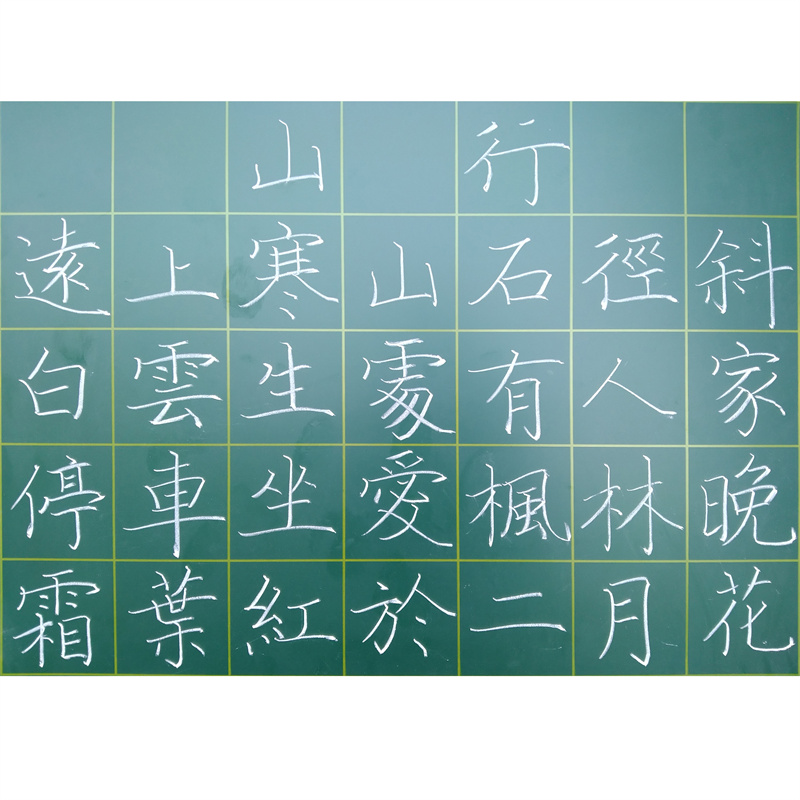 山行
遠上寒山石徑斜
白雲生處有人家
停車坐愛楓林晚
霜葉紅於二月花